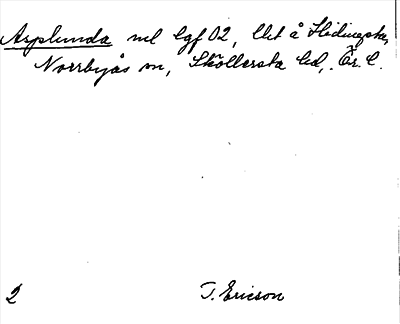 Asplunda nel lgf 02, lht å Hidingsta,
Norrbyås sn, Sköllersta hd, Ör. l.
2 T. Ericson